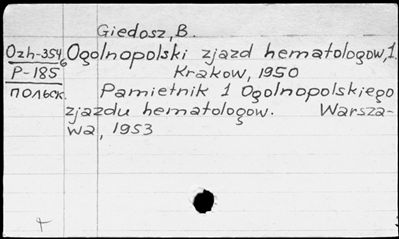 Giedosz, B.
Ozh-354 Ogolnopolski zjazd hematologow, 1.
6
P-185 Krakow, 1950
польск. Pamietnik 1 Ogolnopolskiego
zjazdu hematologow. Warsza-
wa, 1953